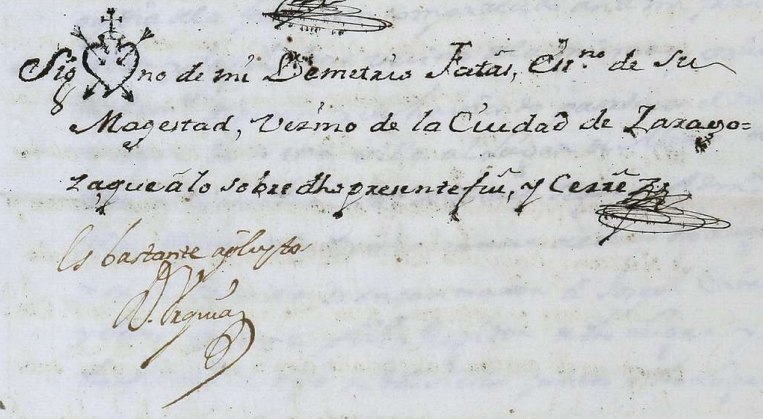 Sig no de mi Demetrio Fatás, Essno. de Su
Magestad, Vezino de la Ciudad de Zarago=
za que à lo sobredho presente fuí, y Cerré
Es bastante